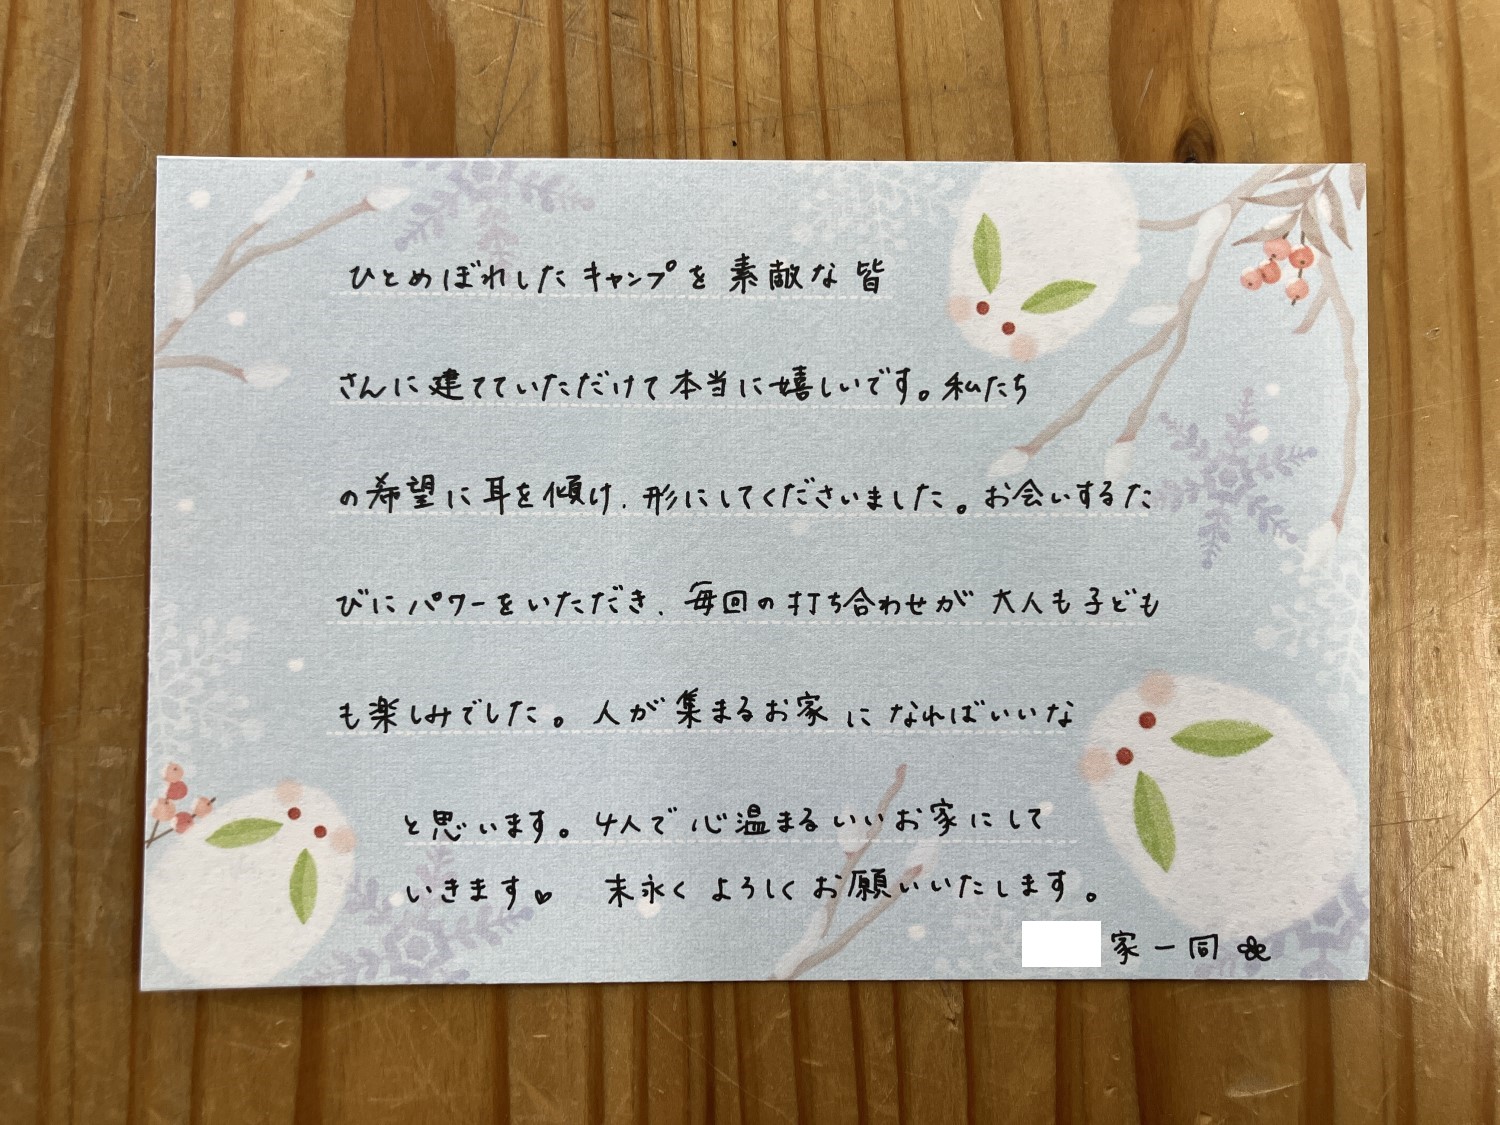 ひとめぼれしたキャンプを素敵な皆
さんに建てていただけて本当に嬉しいです。私たち
の希望に耳を傾け、形にしてくださいました。お会いするた
びにパワーをいただき、毎回の打ち合わせが大人も子ども
も楽しみでした。人が集まるお家になればいいな
と思います。4人で心温まるいいお家にして
いきます♡ 末永くよろしくお願いいたします。
家一同